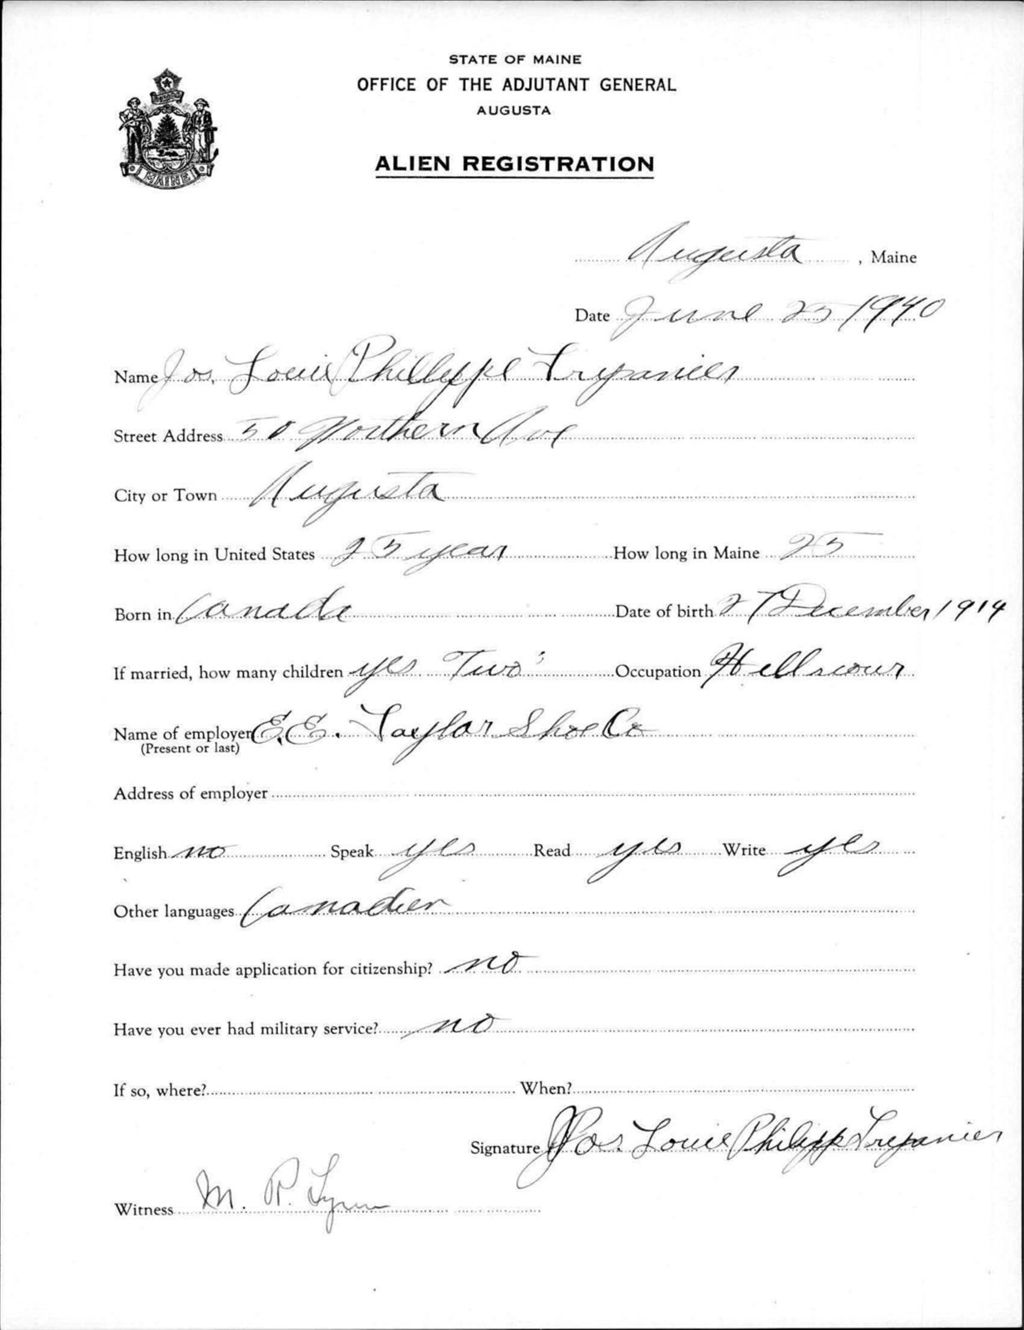 STATE OF MAINE
OFFICE OF THE ADJUTANT GENERAL
AUGUSTA
ALIEN REGISTRATION
MAINE
Augusta, Maine
Date June 25 1940
Name Jos. Louis Phillyppe Trepanier
Street Address 50 Northern Ave
City or Town Augusta
How long in United States 25 year How long in Maine 25
Born in Canada Date of birth 27 December 1914
If married, how many children yes Two Occupation
Name of employer E.E. Taylor Shoe Co
(Present or last)
Address of employer
English no Speak yes Read yes Write yes
Other languages Canadien
Have you made application for citizenship? no
Have you ever had military service? no
If so, where? When?
Signature Jos. Louis Philipp Trepanier
Witness M. P. Lynn